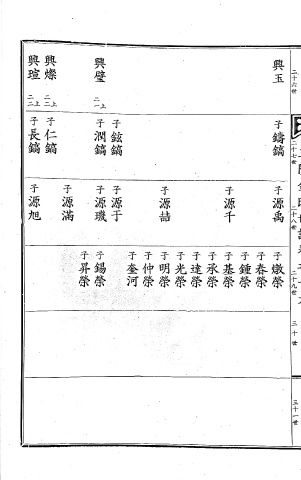 二十六世
興玉
興璧 二一上
興燦 二二上
興瑄 二二上
二十七世
子鑄鎬
子鉉鎬
子潤鎬
子仁鎬
子長鎬
二十八世
子源禹
子源千
子源喆
子源于
子源璣
子源滿
子源旭
二十九世
子燉榮
子春榮
子鍾榮
子基榮
子承榮
子達榮
子光榮
子明榮
子仲榮
子奎河
子錫榮
子昇榮
三十世
三十一世